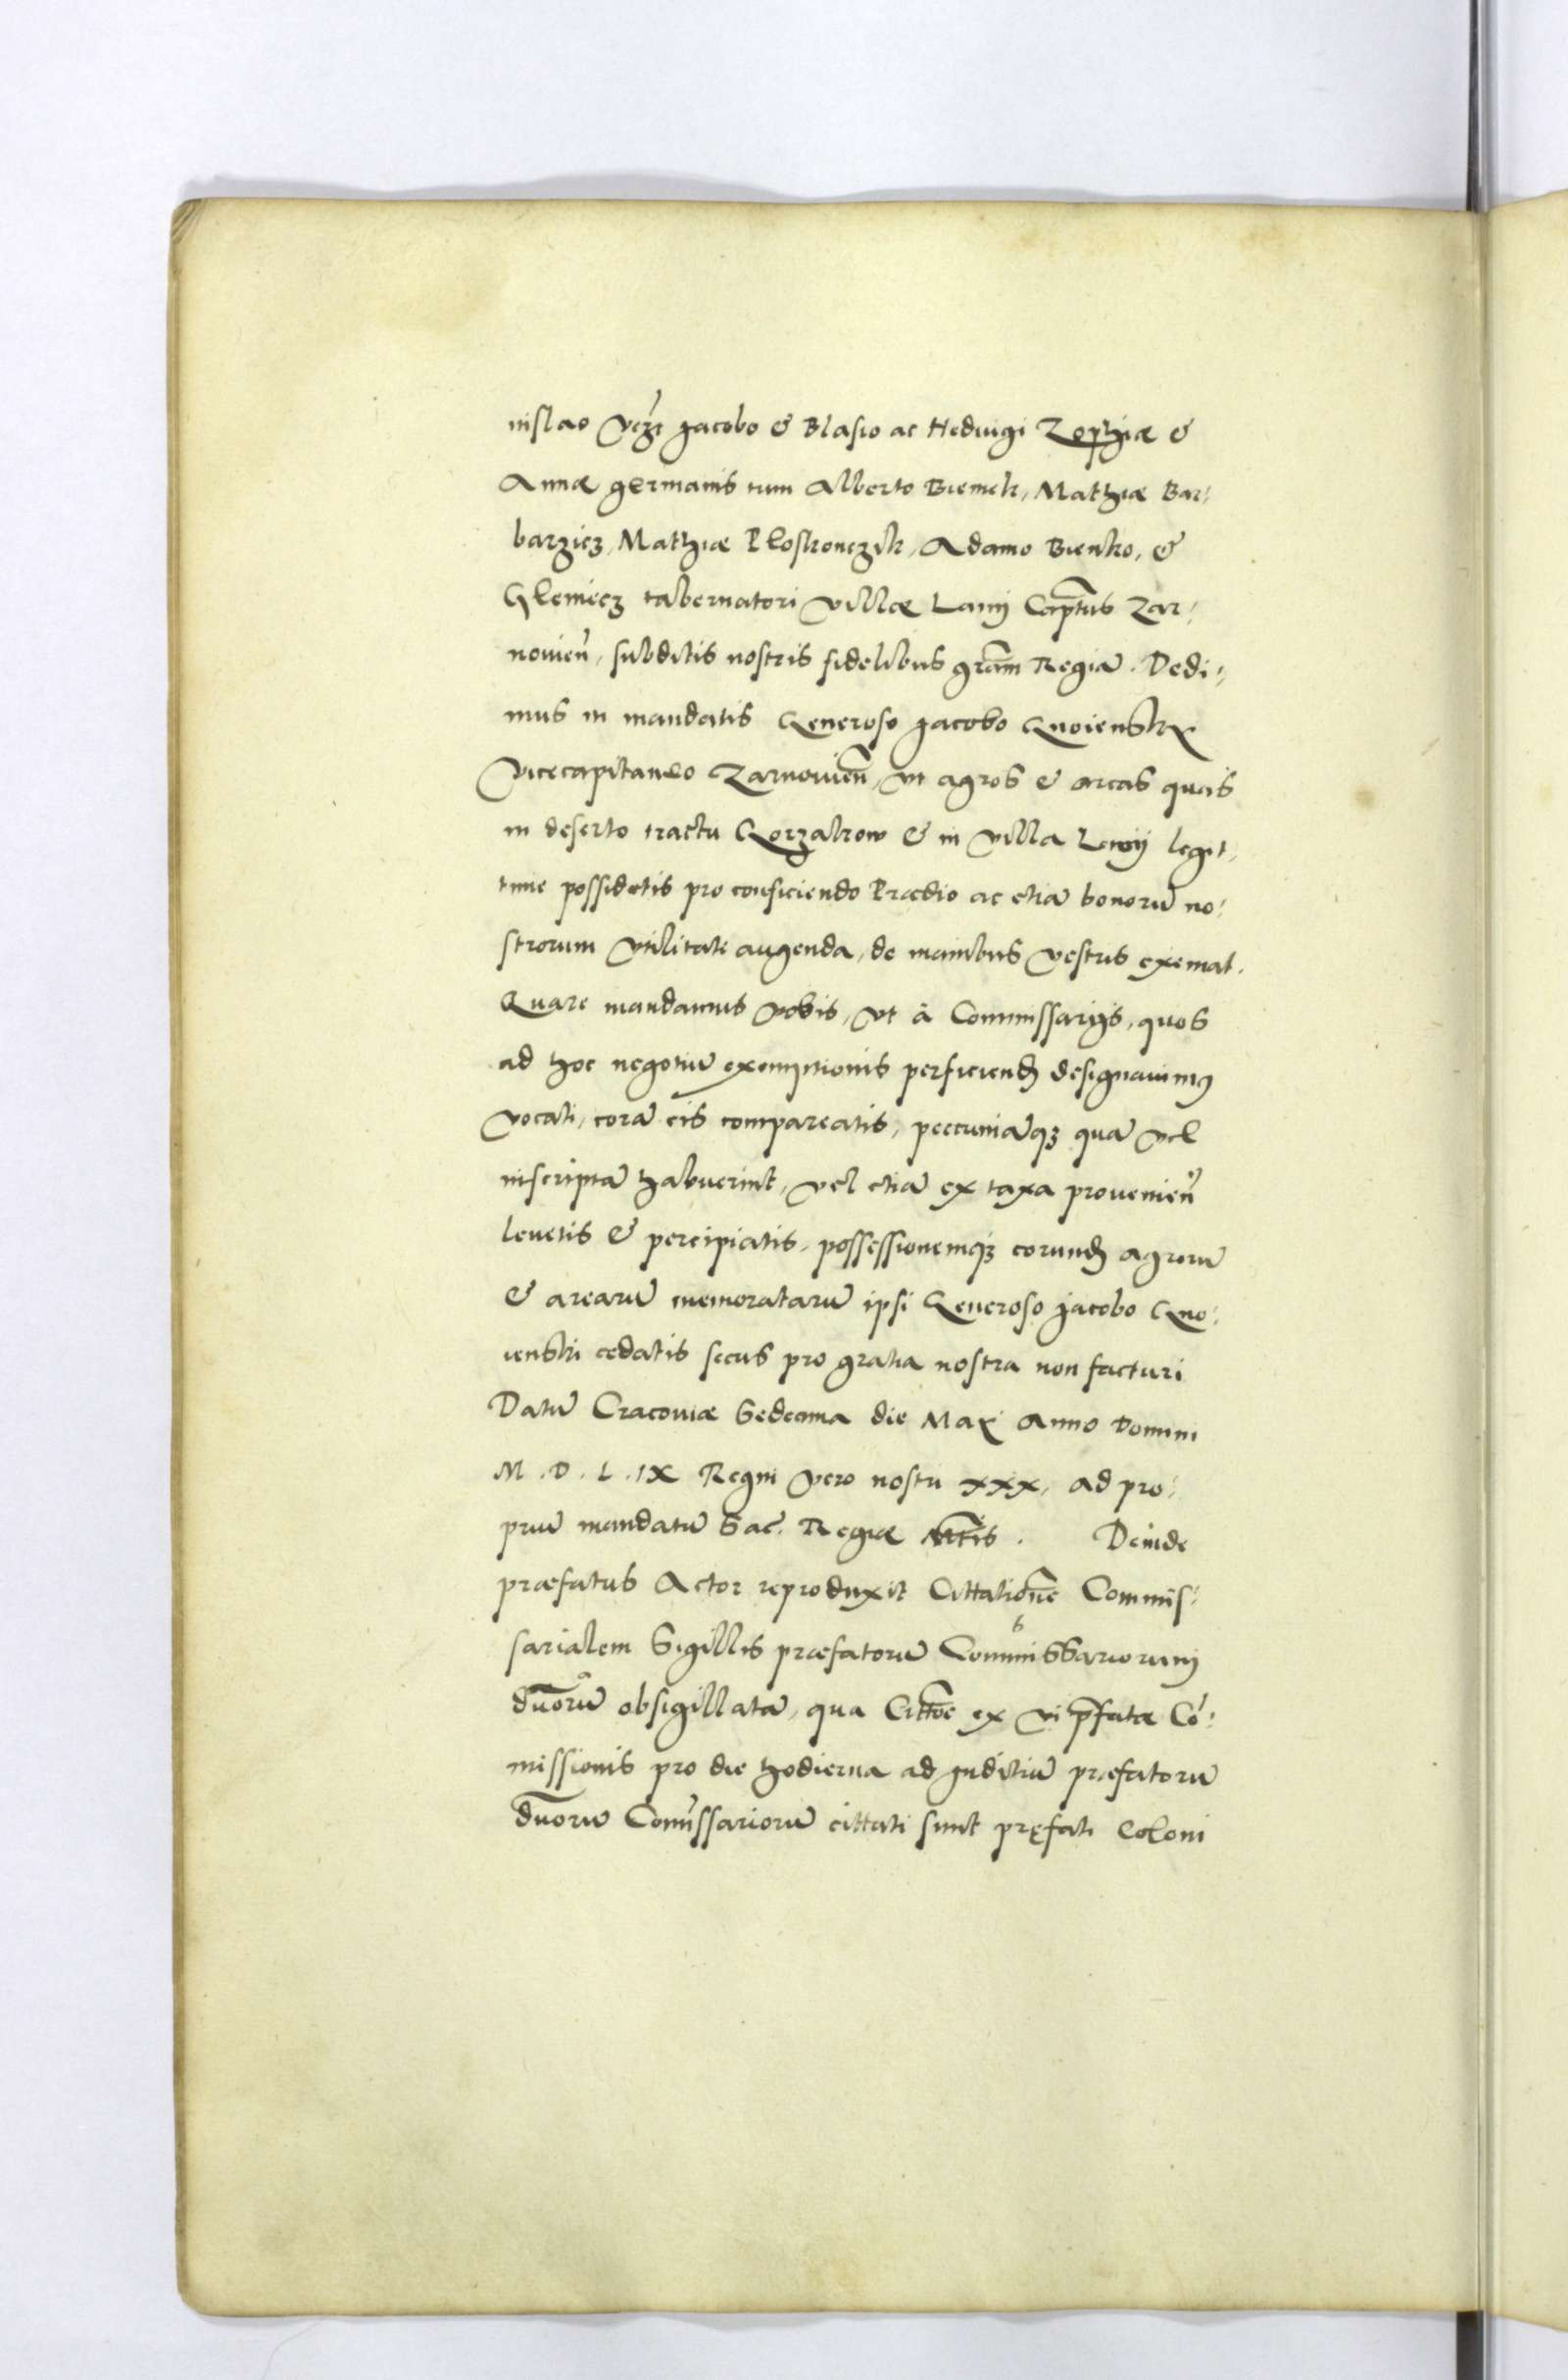 nislao Jacobo & Blasio ac Hedvigi Zophiæ &
Annæ germanis tum Alberto Biemek, Mathiæ Bar⸗
barzicz, Mathiæ Plostronczik, Adamo Bienko, &
Glemiecz tabernatori villæ Lanij Captus Zar⸗
novien̄, subditis nostris fidelibus gram̄ Regiā. Dedi⸗
mus in mandatis Generoso Jacobo Gnoiensky
Vicecapitaneo Zarnovien̄, vt agros & areas quas
in deserto tractu Gorzakow & in villa legit⸗
time possidetis pro conficiendo Prædio ac etiā bonorū no⸗
strorum vtilitate augenda, de manibus vestris eximat.
Quare mandamus vobis, vt à Commissarijs, quos
ad hoc negotiū exemptionis perficiend̄ designavimus
vocati, corā eis compareatis, pecuniāqꝫ quā vel
inscriptā habuerint, vel etiā ex taxa provenien̄
levetis & percipiatis, possessionemqꝫ eorund̄ agrorū
& arearū memoratarū ipsi Generoso Jacobo Gno⸗
ienski cedatis secus pro gratia nostra non facturi
Datū Cracoviæ Sedecima die Maÿ Anno Domini
M . D . L . IX Regni vero nostri xxx, ad pro⸗
priū mandatū Sac. Regiæ Mtis . Deinde
præfatus Actor reproduxit Cittationē Commis⸗
sarialem Sigillis præfatorū Commissariorum
duorū obsigillatā, qua Cittoē ex vi p̄fatæ Cō⸗
missionis pro die hodierna ad Juditiū præfatorū
duorū Com̄issariorū cittati sunt pręfati Coloni